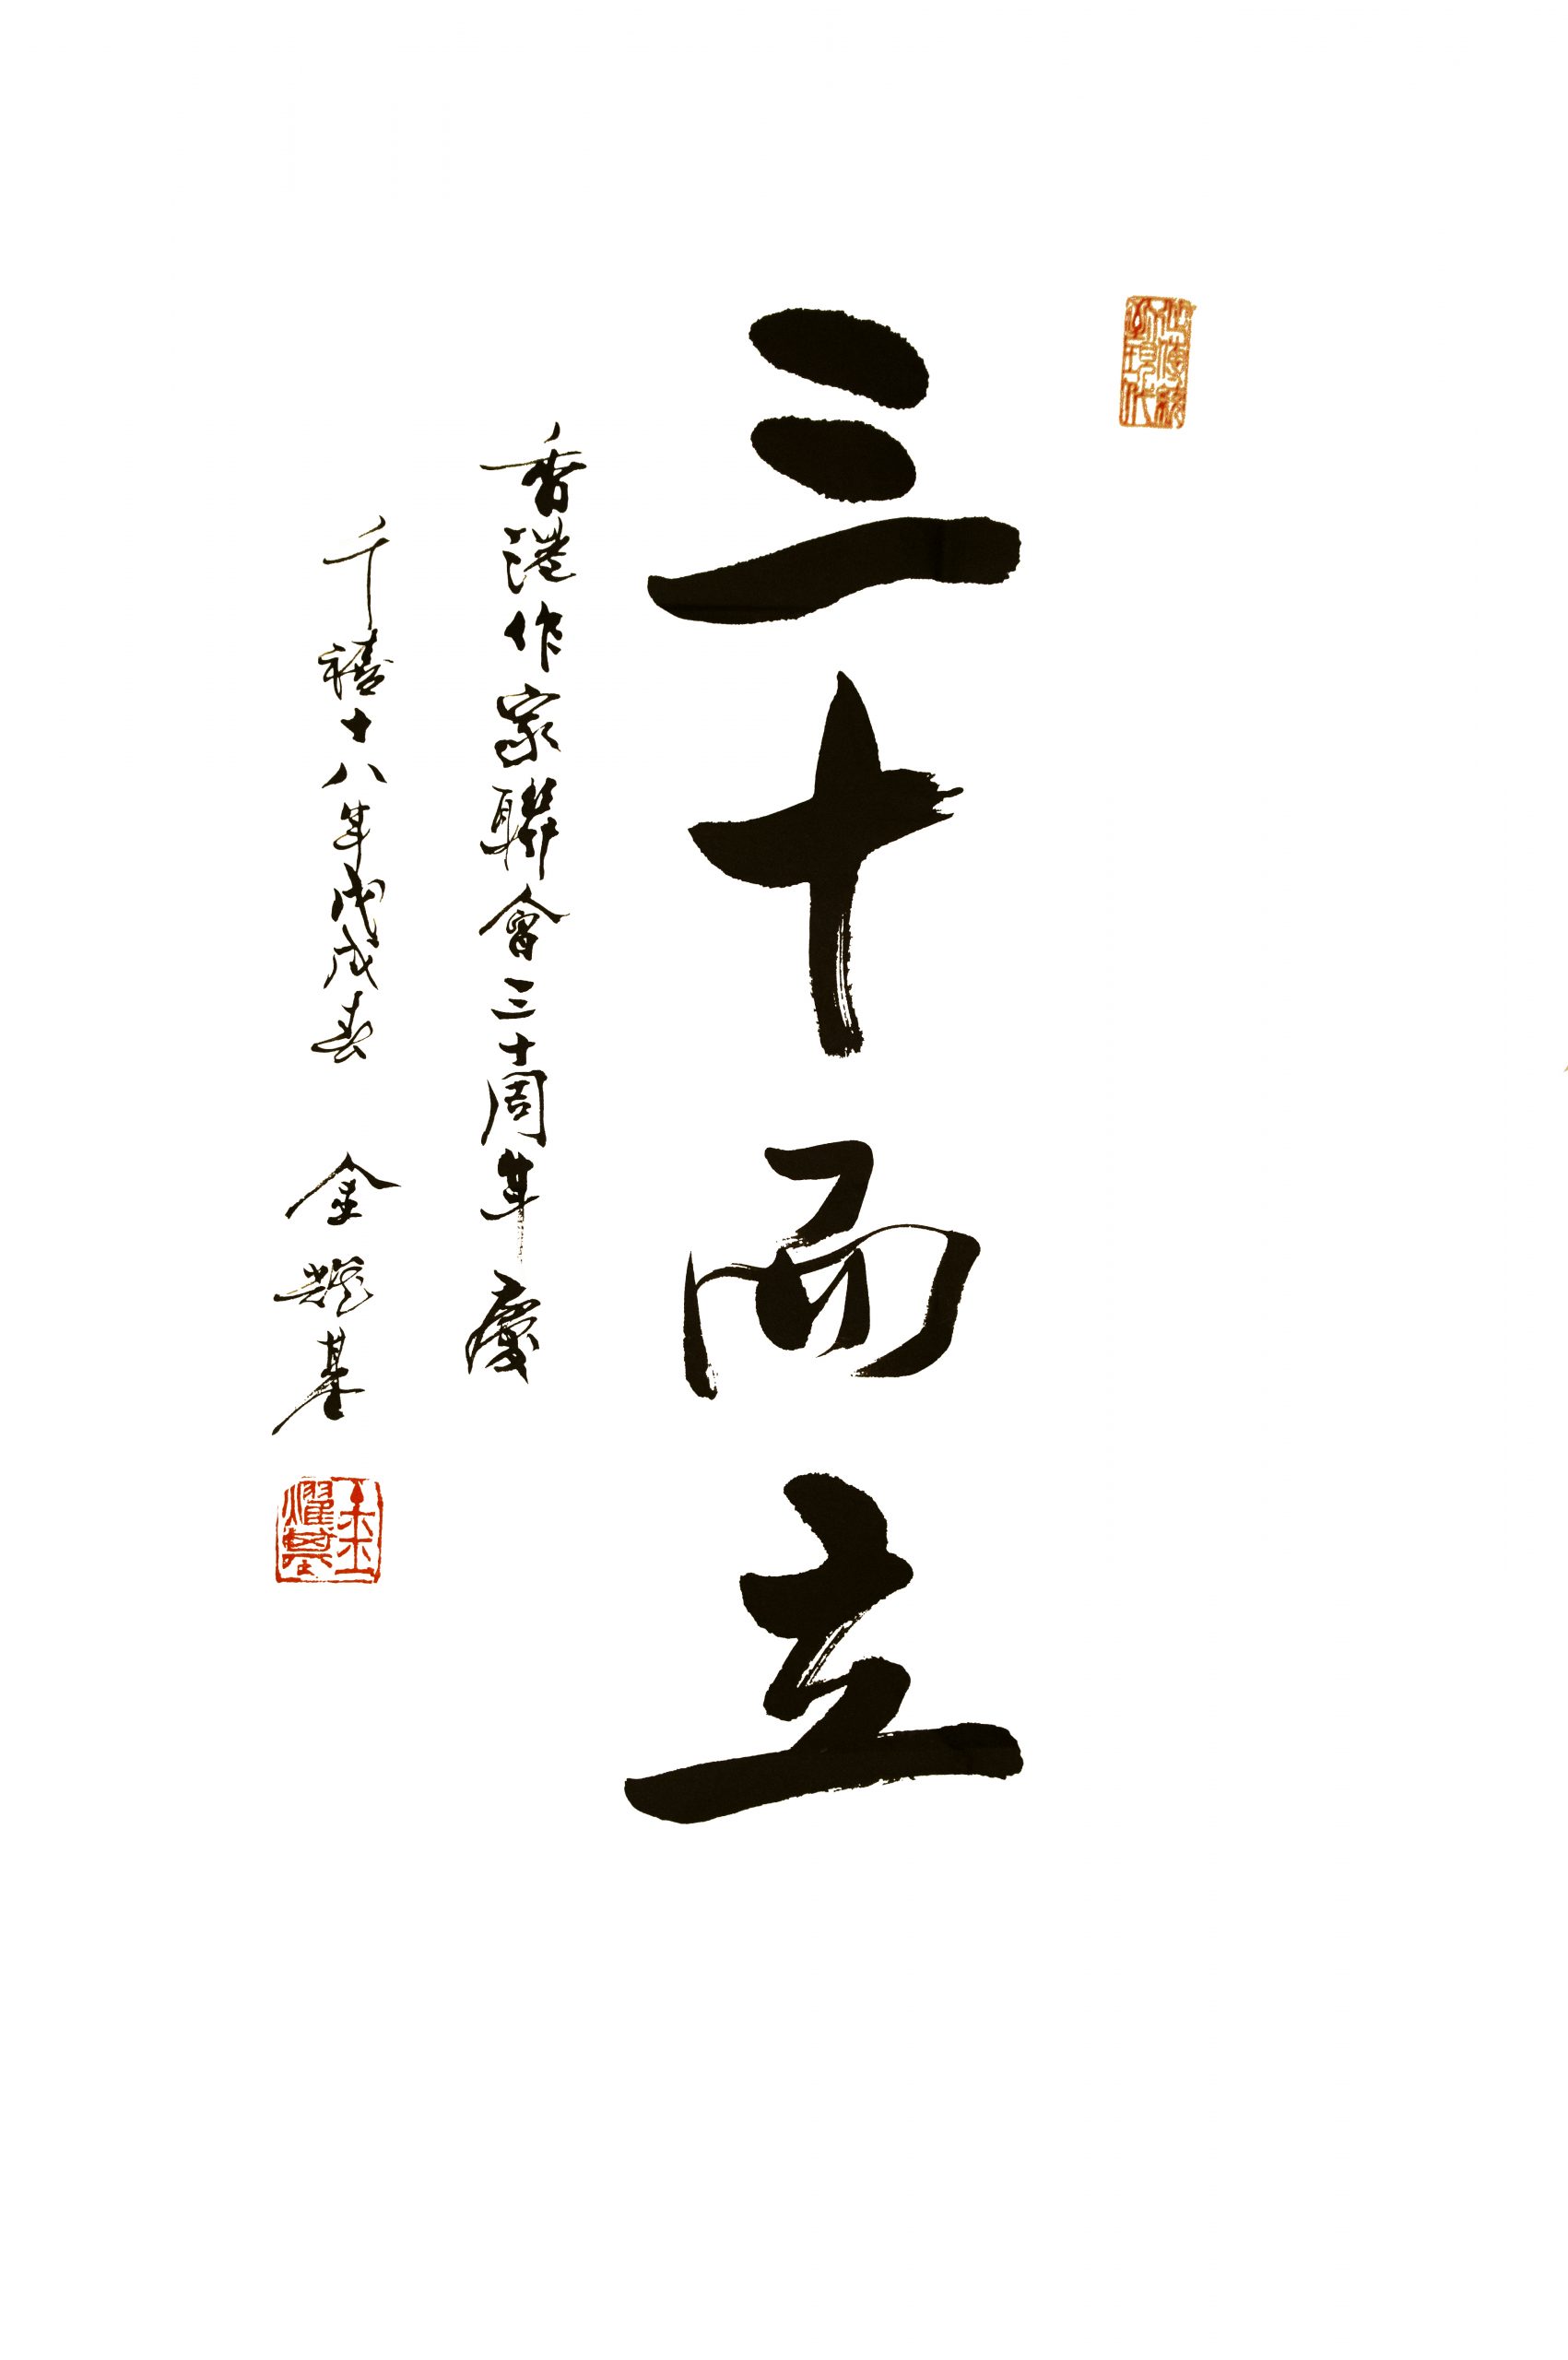 三十而立
香港作家聯會三十周年慶
千禧十八年戊戌春 金耀基
金耀基